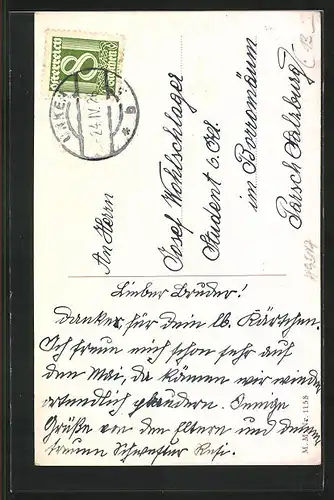 Österreich
8
Groschen
24.IV.
* b
An Herrn
Josef Wohlschlager
Student 6. Kl.
im Borromäum
Parsch Salzburg
Lieber Bruder!
Danke für Dein lb. Kärtchen.
Ich freue mich schon sehr auf
den Mai, da können wir wieder
ordentlich plaudern. Innige
Grüße von den Eltern und deiner
treuen Schwester Resi.
M. M. Nr. 1158